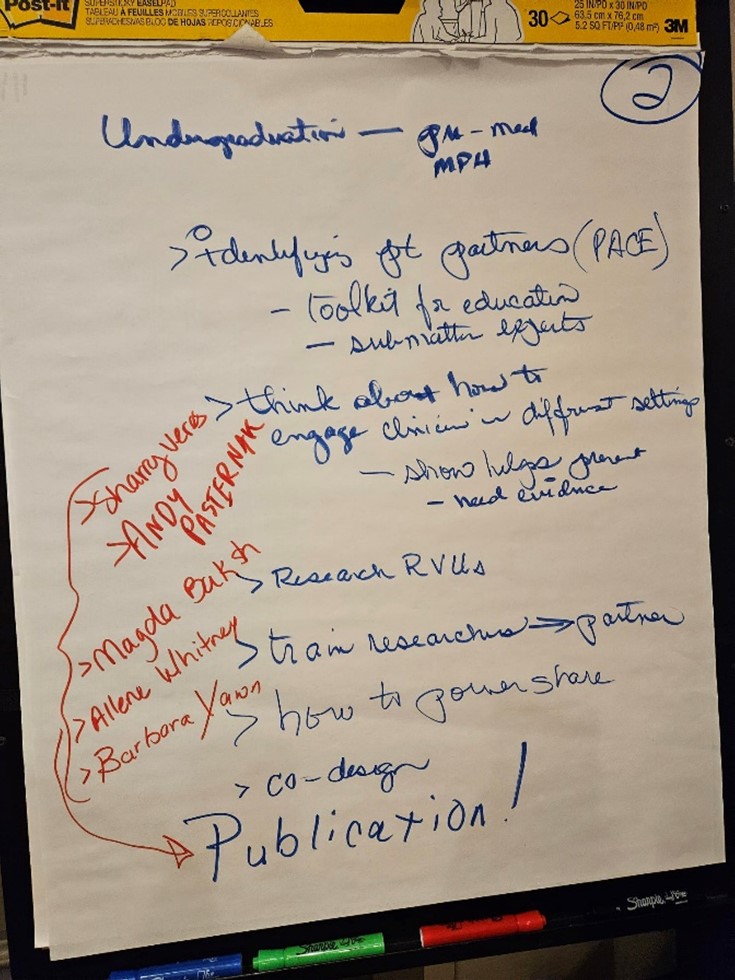 Post-it
SUPERSTICKY EASEL PAD
TABLEAU À FEUILLES MOBILES SUPERCOLLANTES
SUPERADHESIVAS BLOC DE HOJAS REPOSICIONABLES
30
25 IN/PO x 30 IN/PO
63,5 cm x 76,2 cm
5.2 SQ FT/PI² (0,48 m²)
3M
2
Undergraduation — pre-med
MPH
> identifying pt partners (PACE)
- toolkit for education
- submatter experts
> think about how to
engage clinician in different settings
- show helps prevent
- need evidence
> Sharry Veres
> ANDY
PASTERNAK
> Research RVUs
> Magda Buksh
> train researchers → partner
> Allene Whitney
> how to power share
> Barbara Yawn
> co-design
Publication!
Sharpie
Sharpie